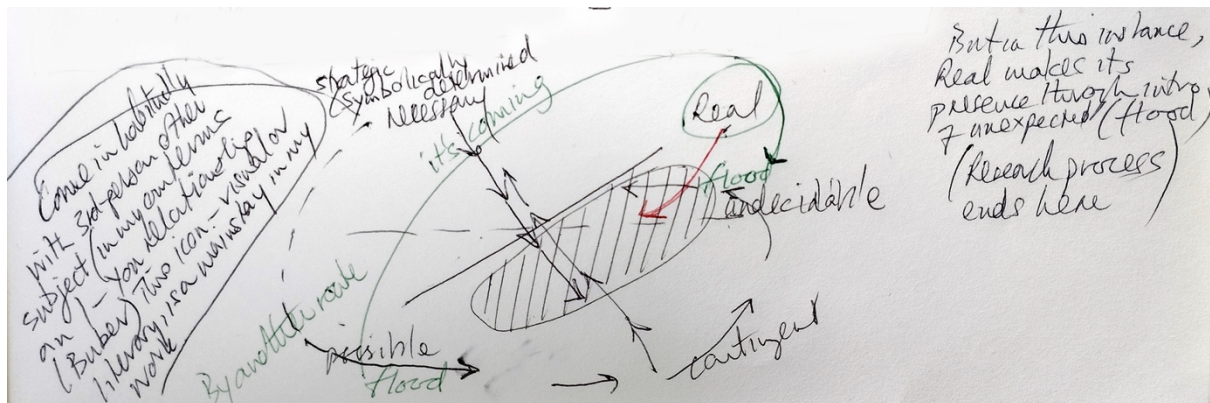 Come in habitually
with 3rd-person other
subject (in my own terms
an I-You relationship
(Buber) This icon - visual or
literary, is a mainstay in my
work
strategic
(symbolically
determined
necessary
it's coming
Real
flood
undecidable
By another route
possible
flood
contingent
But in this instance,
Real makes its
presence through intro
of unexpected (flood)
(Research process)
ends here